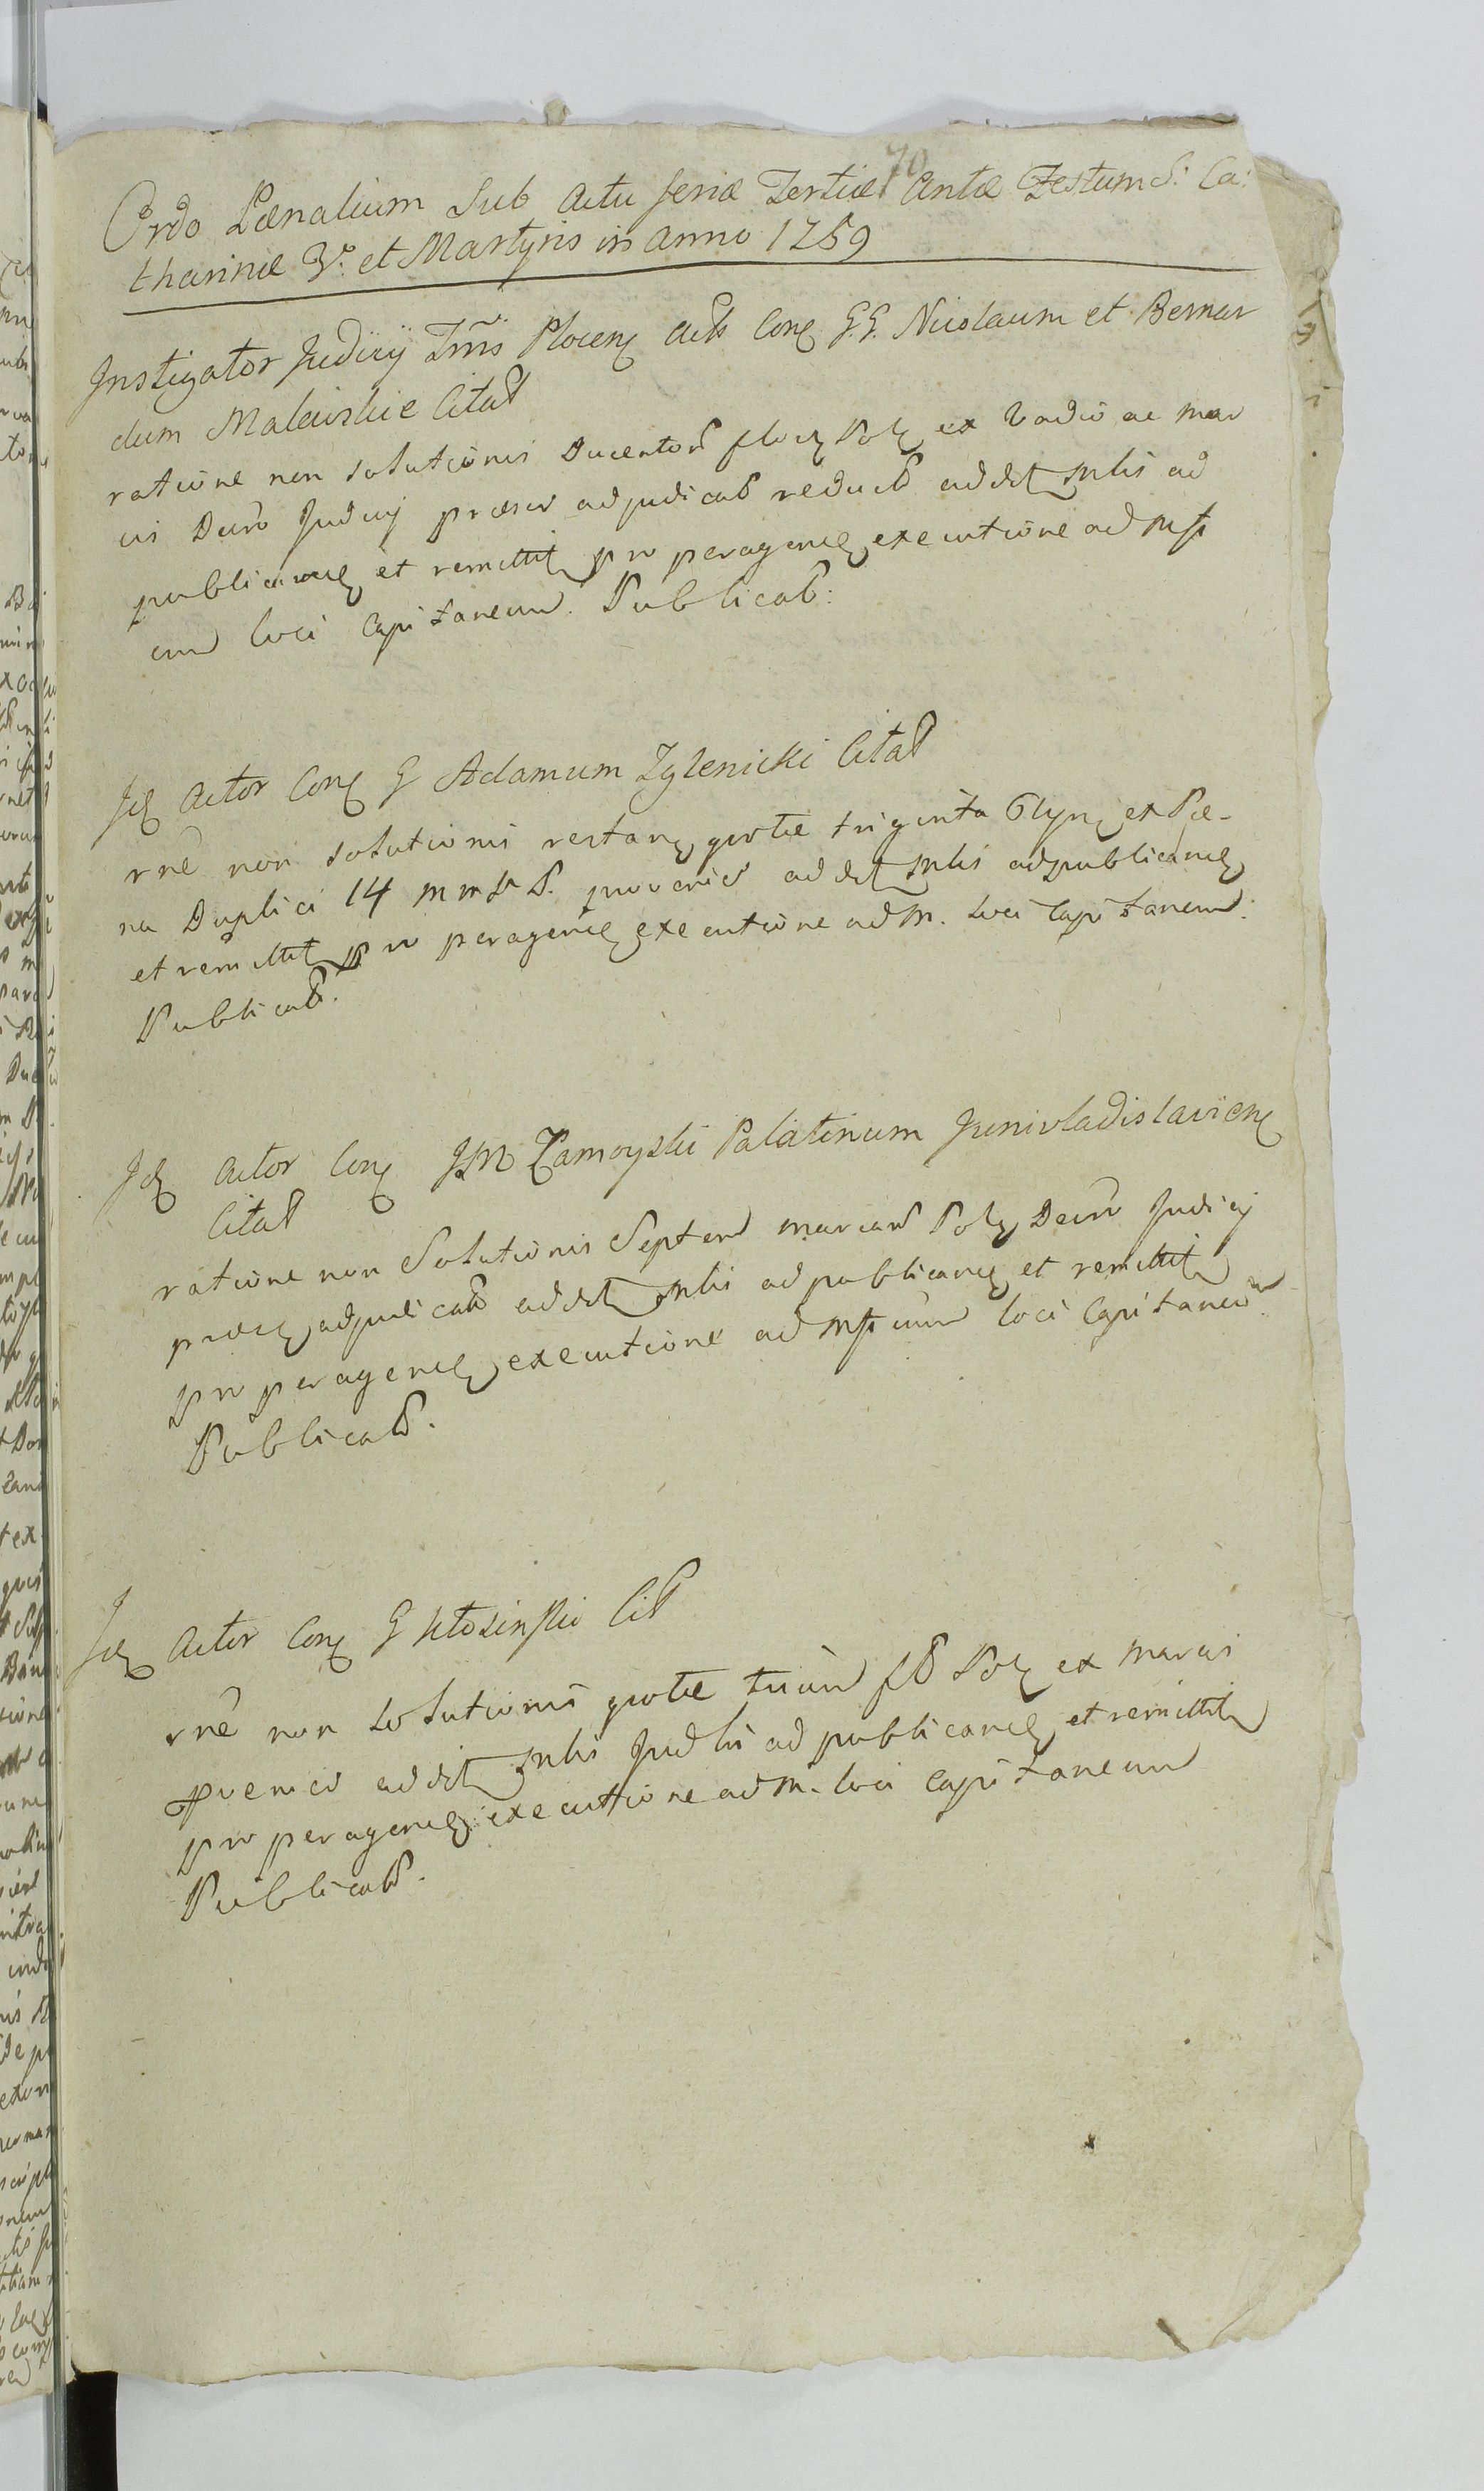 70
Ordo Pœnalium Sub Actu feriæ Tertiæ Antæ Festum S: Ca:
tharinæ V. et Martyris in Anno 1759
Instigator Judicij Trris Plocen Actor Con G.G. Nicolaum et Bernar
dum Malewskie Citat
ratione non solutionis Ducentor flor Pol ex Vadio ac mar
cis Decro Judicij præsen adjudicat reduct addit Mtis ad
publicand et remittit pro peragend executione ad Mfi
cum loci Capitaneum. Publicat:
Id Actor Con G Adamum Zglenicki Citat
rne non solutionis restan quotæ triginta Tlyn et Pæ-
na Duplici 14 M P. provenien addit Mtis ad publicand
et remittit pro peragend executione ad M. loci Capitaneum.
Publicat.
Id Actor Con JM Zamoyski Palatinum Junivladislavien
Citat
ratione non Solutionis Septem marcar Pol Decro Judicij
præsen adjudicat addit Mtis ad publicand et remittit
pro peragend executione ad Mficum loci Capitaneum.
Publicat.
Id Actor Con G Cit
rne non Solutionis quotæ trium fl Pol ex marcis
provenien addit Mtis Judlis ad publicand et remittit
pro peragend executione ad M. loci Capitaneum
Publicat.